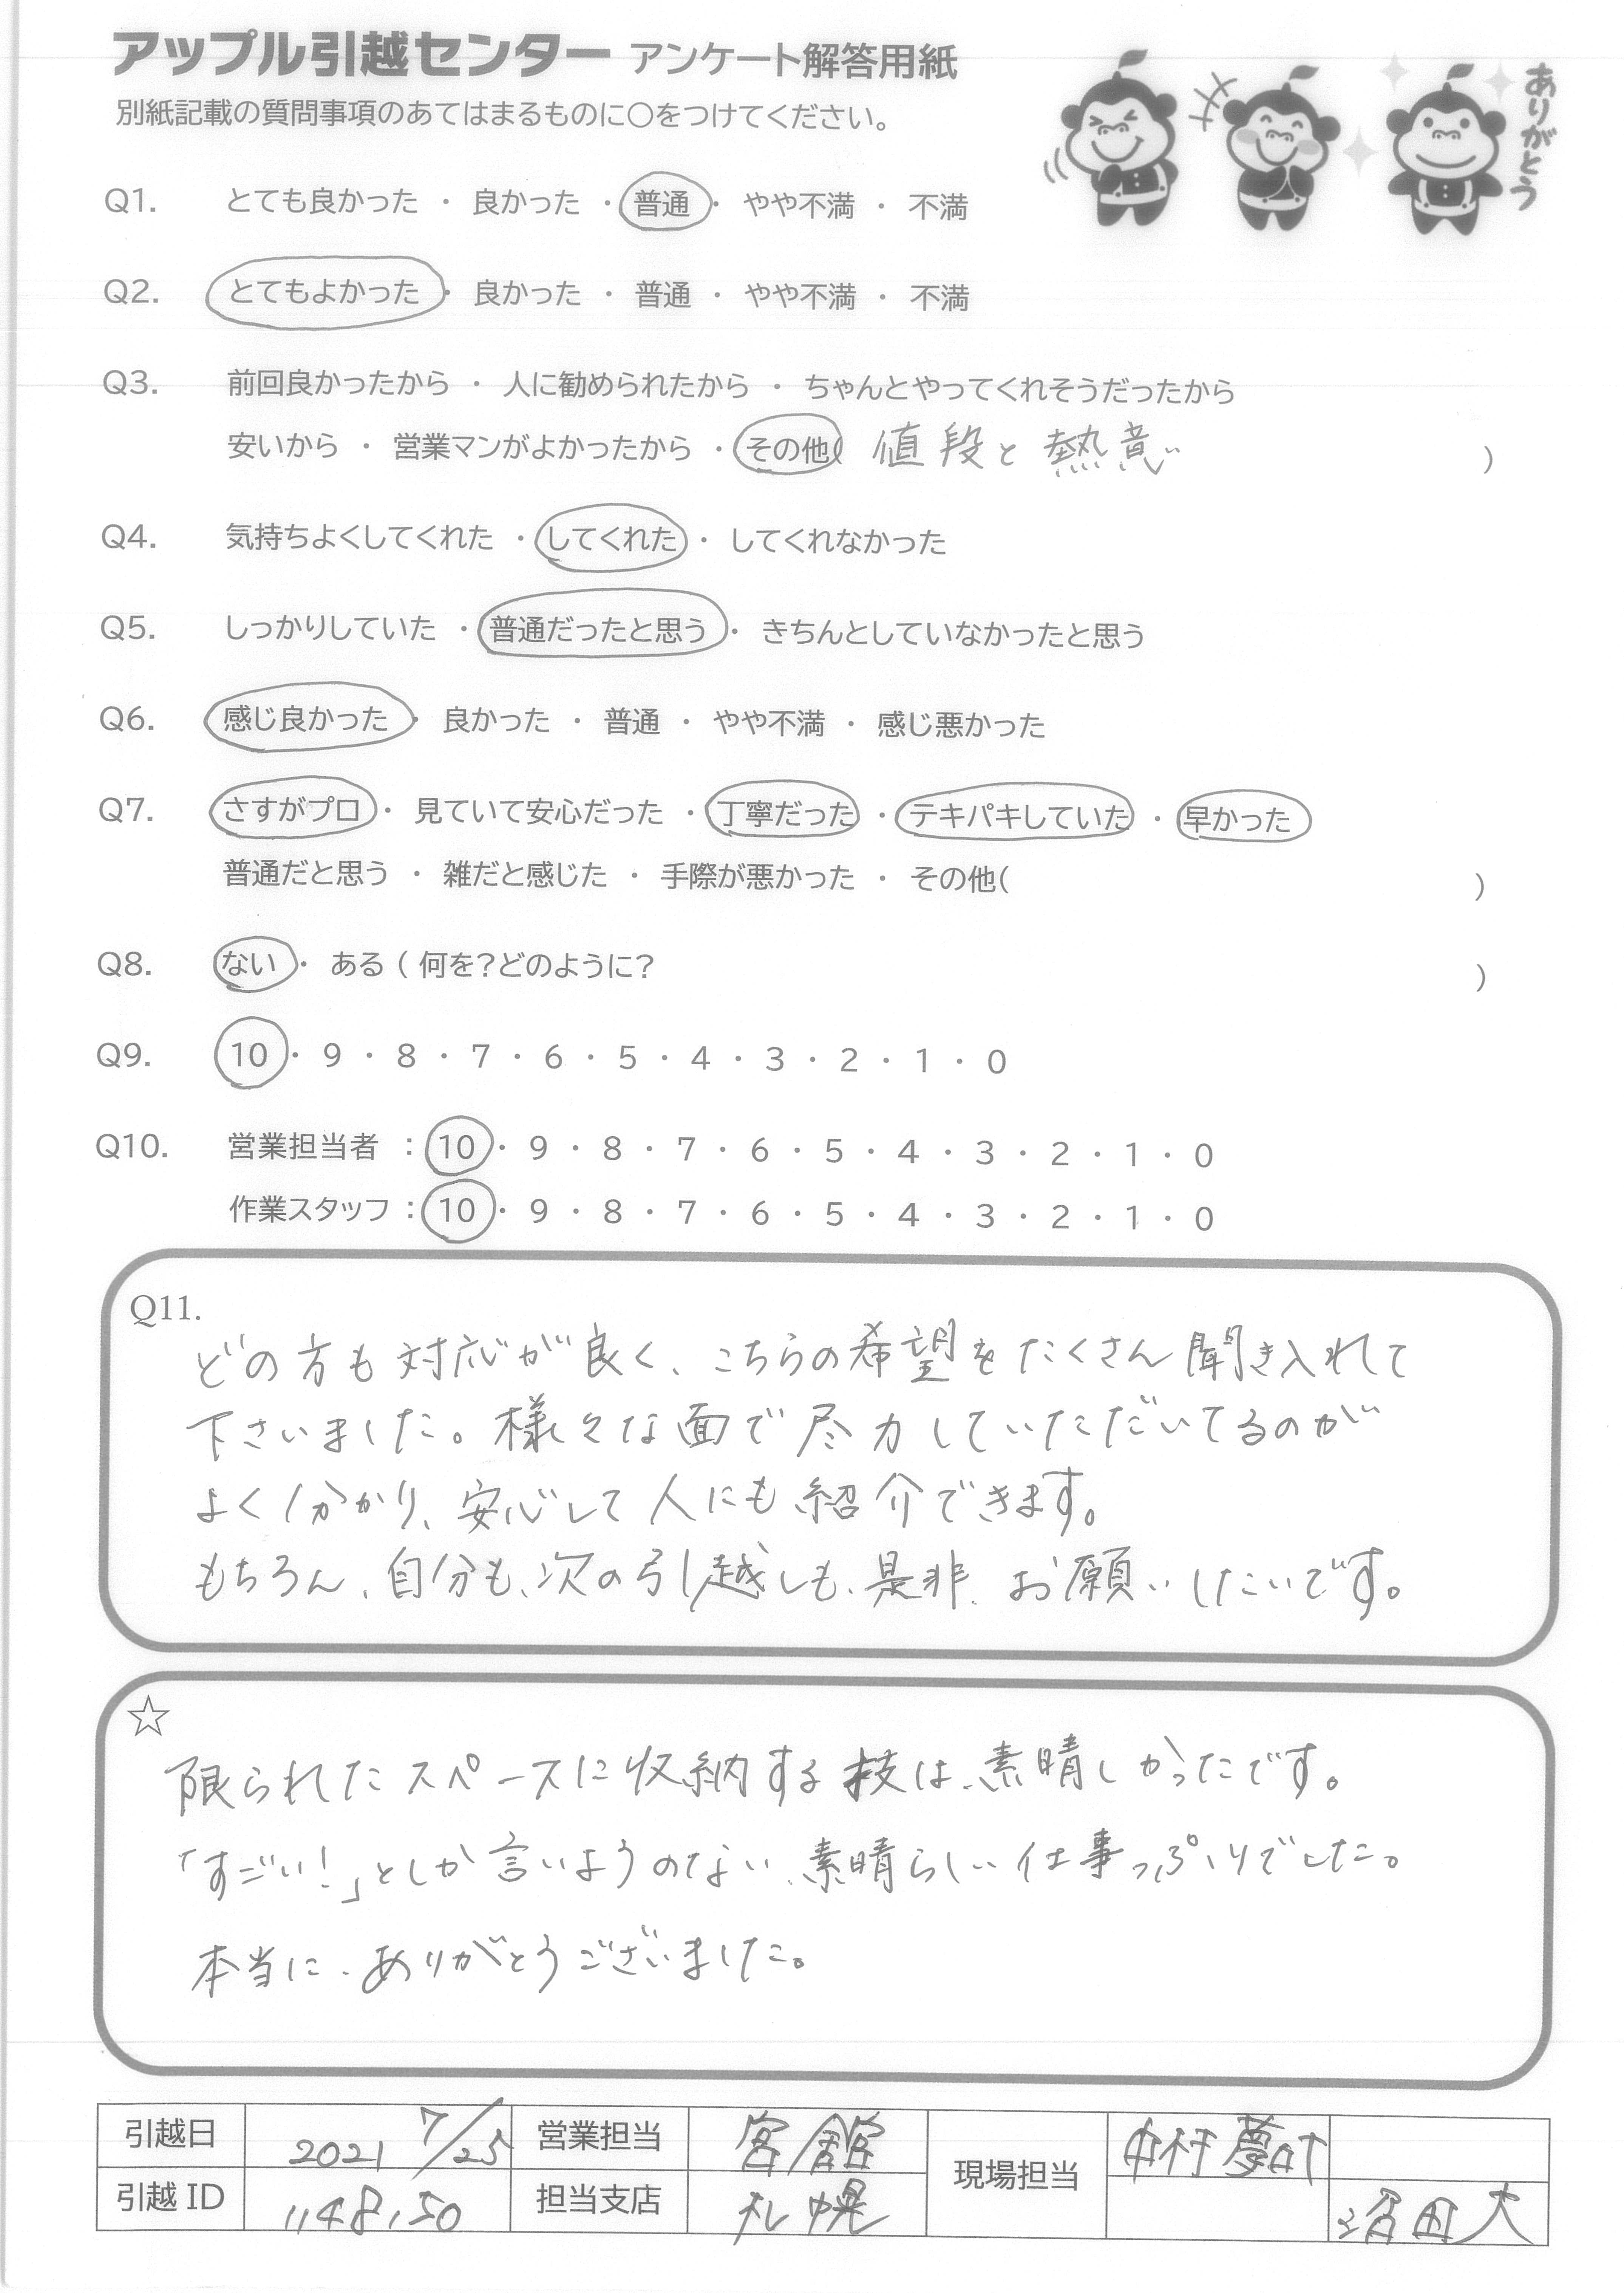 アップル引越センター アンケート解答用紙
ありがとう
別紙記載の質問事項のあてはまるものに○をつけてください。
Q1. とても良かった ・ 良かった ・ 普通 ・ やや不満 ・ 不満
Q2. とてもよかった ・ 良かった ・ 普通 ・ やや不満 ・ 不満
Q3. 前回良かったから ・ 人に勧められたから ・ ちゃんとやってくれそうだったから
安いから ・ 営業マンがよかったから ・ その他( 値段と熱意 )
Q4. 気持ちよくしてくれた ・ してくれた ・ してくれなかった
Q5. しっかりしていた ・ 普通だったと思う ・ きちんとしていなかったと思う
Q6. 感じ良かった ・ 良かった ・ 普通 ・ やや不満 ・ 感じ悪かった
Q7. さすがプロ ・ 見ていて安心だった ・ 丁寧だった ・ テキパキしていた ・ 早かった
普通だと思う ・ 雑だと感じた ・ 手際が悪かった ・ その他( )
Q8. ない ・ ある ( 何を?どのように? )
Q9. 10 ・ 9 ・ 8 ・ 7 ・ 6 ・ 5 ・ 4 ・ 3 ・ 2 ・ 1 ・ 0
Q10. 営業担当者 : 10 ・ 9 ・ 8 ・ 7 ・ 6 ・ 5 ・ 4 ・ 3 ・ 2 ・ 1 ・ 0
作業スタッフ : 10 ・ 9 ・ 8 ・ 7 ・ 6 ・ 5 ・ 4 ・ 3 ・ 2 ・ 1 ・ 0
Q11.
どの方も対応が良く、こちらの希望をたくさん聞き入れて
下さいました。様々な面で尽力していただいてるのが
よく分かり、安心して人にも紹介できます。
もちろん、自分も、次の引越しも、是非、お願いしたいです。
☆
限られたスペースに収納する技は、素晴しかったです。
「すごい!」としか言いようのない、素晴らしい仕事っぷりでした。
本当に、ありがとうございました。
引越日 2021 7/25 営業担当 宮舘 現場担当 中村夢叶
引越ID 1148150 担当支店 札幌 沼田大